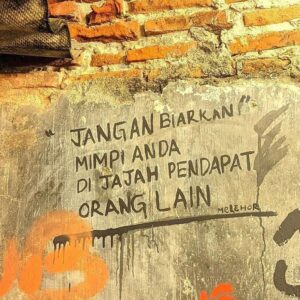 " JANGAN BIARKAN!"
MIMPI ANDA
DI JAJAH PENDAPAT
ORANG LAIN